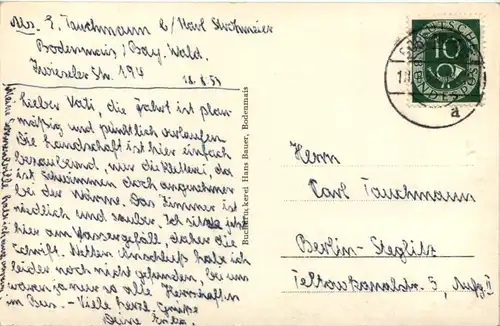 Abs. E. Tauchmann b/Karl Strohmeier
Bodenmais / Bay. Wald.
Zwieseler Str. 194
18.8.53
Lieber Vati, die Fahrt ist plan-
mäßig und pünktlich verlaufen.
Die Landschaft ist hier einfach
bezaubernd, nur die Kletterei, da
ist Schwimmen doch angenehmer
bei der Wärme. Das Zimmer ist
niedlich und sauber. Ich sitze jetzt
hier am Wassergefälle, daher die
Schrift. Netten Anschluß habe ich
leider noch nicht gefunden, bei uns
waren ja nur so alte Herrschaften
im Bus. - Viele herzl. Grüße
Deine Erika.
Buchdruckerei Hans Bauer, Bodenmais
DEUTSCHE
10
BUNDESPOST
a
Herrn
Carl Tauchmann
Berlin-Steglitz
Teltowkanalstr. 5, Aufg. II